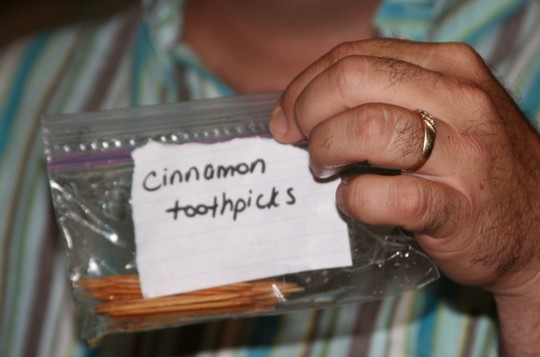 Cinnamon
toothpicks